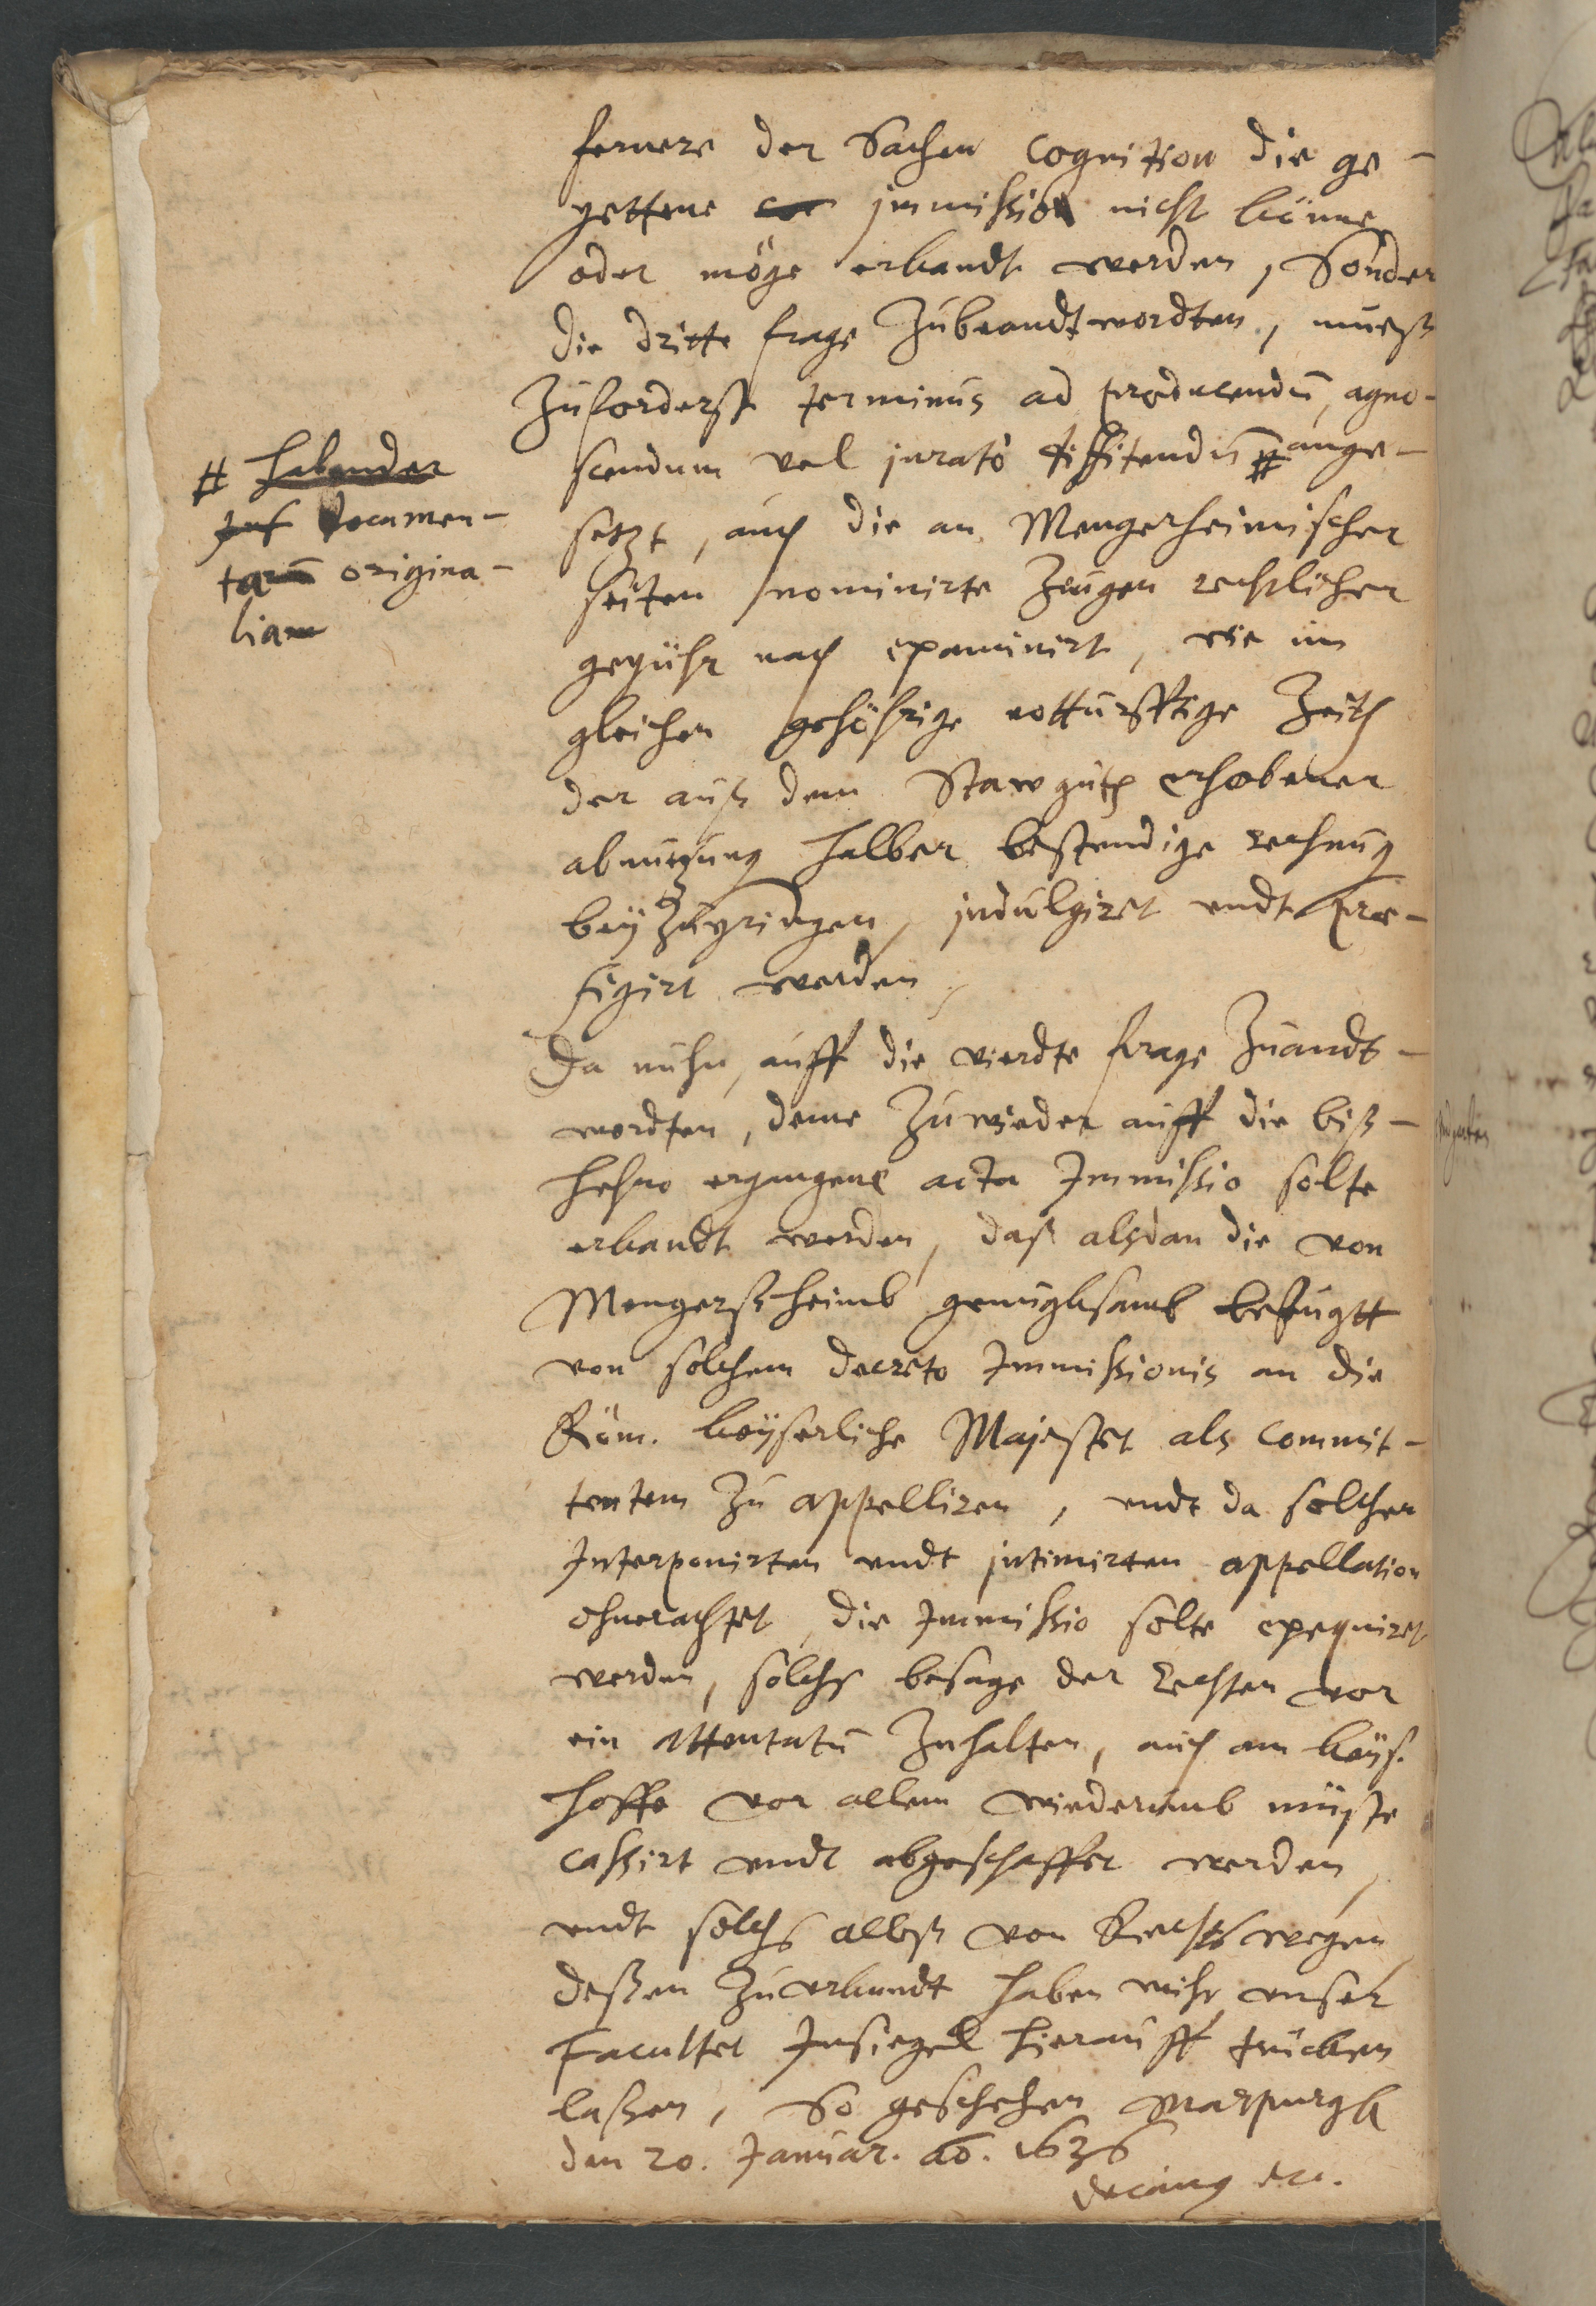 fernere der Sachen cognition die ge-
pettene immission nicht könne
oder möge erkandt werden, Sonder
die dritte frage Zubeandtwordten, muesz
Zuforderst terminus ad producendū, agno-
scendum vel jurato diffitendū # ange-
# habender
documen-
tarū origina-
lium
setzt, auch die an Mengersheimischer
seiten nominirte Zeugen rechtlicher
gepühr nach examinirt, wie im
gleichen gehöhrige notturfftige Zeith
der auß dem Stawguth erhobener
abnutzung halber bestendige rechnung
bey Zupringen, indulgiret undt præ-
figirt werden,
Da nuhn, auff die vierdte frage Zuandt-
wordten, deme Zuwieder auff die biß-
hehro ergangene acta Immissio solte
erkandt werden, daß alßdan die von
Mengerßheimb genugksamb befugtt
von solchem decreto Immissionis an die
Röm. keyserliche Majestet als commit-
tentem Zu appelliren, undt da solcher
Interponirten undt intimirten appellation
ohnerachtet, die Immissio solte exequiret
werden, solchs besage der rechten vor
ein Attentatū Zuhalten, auch am keys.
hoffe vor allem wiederumb müste
cassirt undt abgeschaffet werden,
undt solchs alleß von Rechts wegen,
deßen Zu erkundt haben wihr unser
Facultet Insiegel hierauff trücken
laßen, So geschehen Marpurgk
den 20. Januar. ao. 1636
Decanus etc.